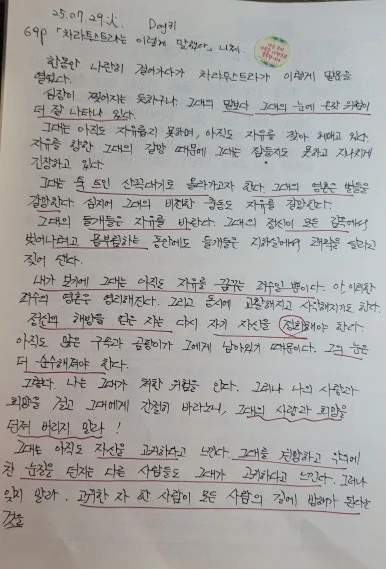 25.07.29.火 Day81
69p 「차라투스트라는 이렇게 말했다」 니체.
한동안 나란히 걸어가다가 차라투스트라가 이렇게 말문을
열었다.
심장이 찢어지는 듯하구나. 그대의 말보다 그대의 눈에 온갖 위험이
더 잘 나타나 있다.
그대는 아직도 자유롭지 못하며, 아직도 자유를 찾아 헤매고 있다.
자유를 향한 그대의 갈망 때문에 그대는 잠들지도 못하고 지나치게
긴장하고 있다
그대는 툭 트인 산꼭대기로 올라가고자 한다. 그대의 영혼은 별들을
갈망한다. 심지어 그대의 비천한 충동도 자유를 갈망한다.
그대의 들개들은 자유를 바란다. 그대의 정신이 모든 감옥에서
벗어나려고 몸부림하는 동안에도 들개들은 지하실에서 쾌락을 달라고
짖어 댄다.
내가 보기에 그대는 아직도 자유를 꿈꾸는 죄수일 뿐이다. 아, 이러한
죄수의 영혼은 영리해진다. 그리고 동시에 교활해지고 사악해지기도 한다.
정신의 해방을 얻은 자는 다시 자기 자신을 정화해야 한다.
아직도 많은 구속과 곰팡이가 그에게 남아있기 때문이다. 그의 눈은
더 순수해져야 한다.
그렇다. 나는 그대가 처한 위험을 안다. 그러나 나의 사랑과
희망을 걸고 그대에게 간절히 바라노니, 그대의 사랑과 희망을
던져 버리지 말라!
그대는 아직도 자신을 고귀하다고 느낀다. 그대를 원망하고 악의에
찬 눈길을 던지는 다른 사람들도 그대가 고귀하다고 느낀다. 그러나
잊지 말라. 고귀한 자 한 사람이 모든 사람의 길에 방해가 된다는
것을